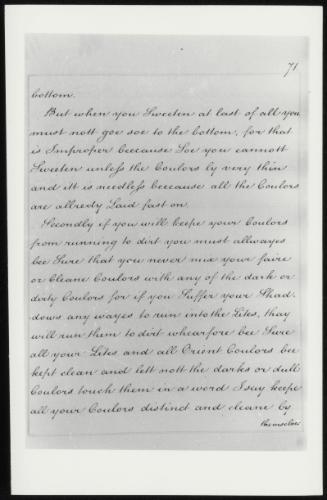 71
bottom.
But when you Sweeten at last of all you
must nott goe soe to the bottom, for that
is Improper beecause Soe you cannott
Sweeten unless the Coulors ly very thin
and itt is needless beecause all the Coulors
are allredy Laid fast on.
Secondly if you will keepe your Coulors
from running to dirt you must allwayes
bee Sure that you never mix your faire
or Cleane Coulors with any of the dark or
dirty Coulors for if you Suffer your Shad-
dows any wayes to run into the Lites, thay
will run them to dirt whearfore bee Sure
all your Lites and all Orient Coulors bee
kept clean and lett nott the darks or dull
Coulors touch them in a word I say keepe
all your Coulors distinct and cleane by
themselves